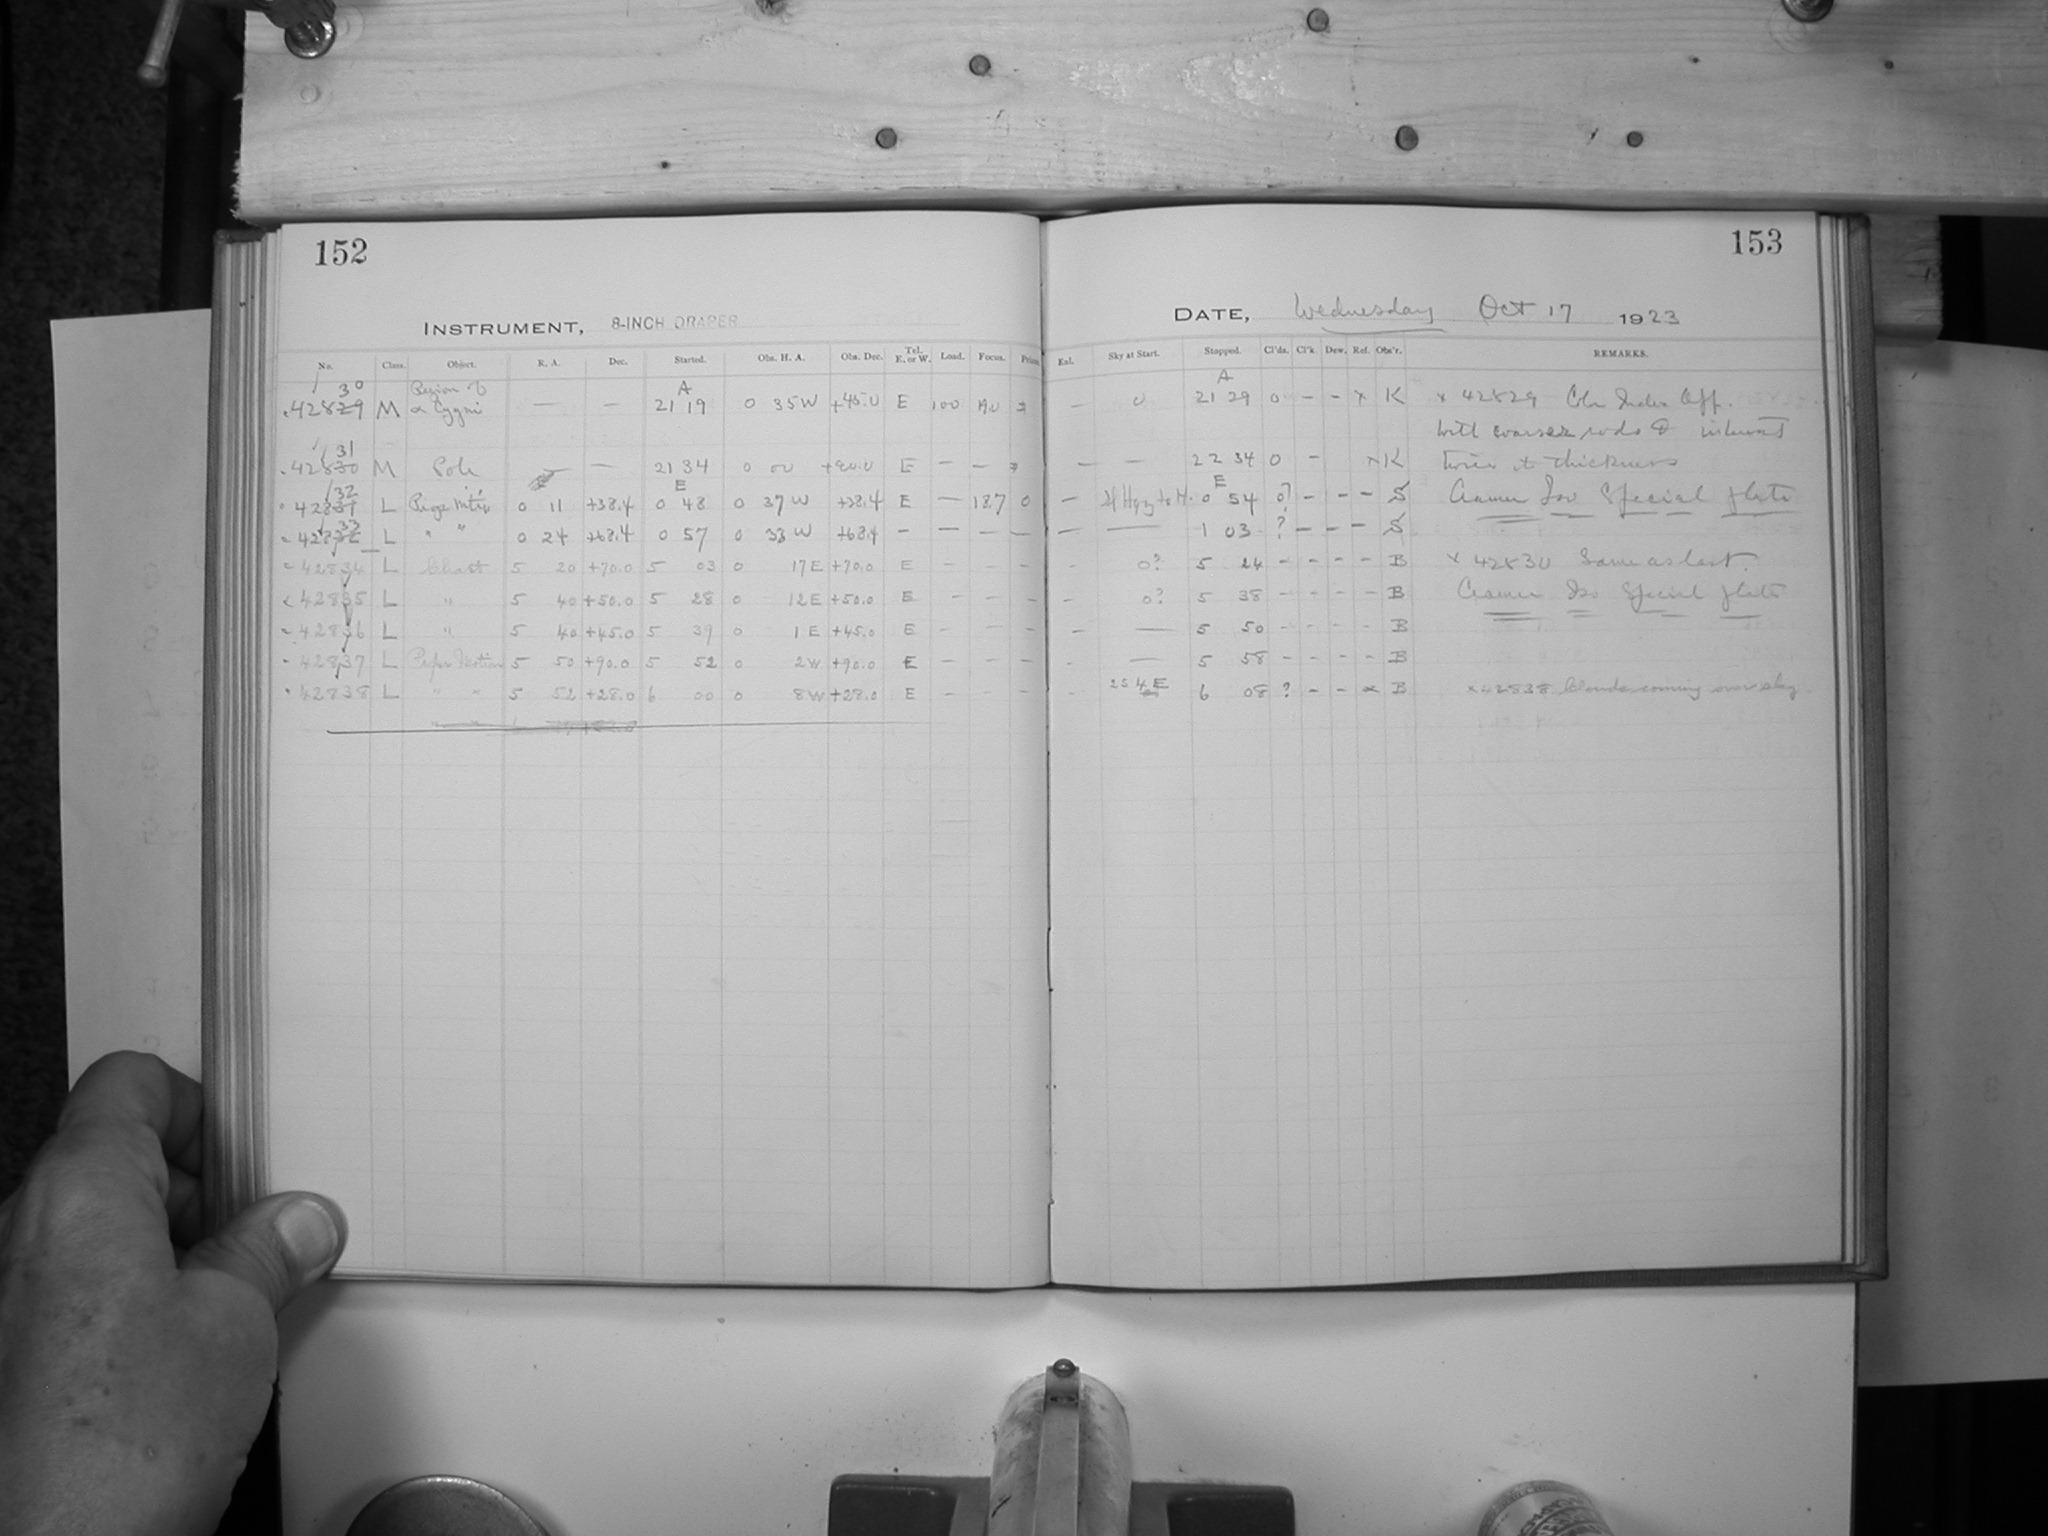 152
153
INSTRUMENT, 8-INCH DRAPER
DATE, Wednesday Oct 17 1923
No. Class. Object. R. A. Dec. Started. Obs. H. A. Obs. Dec. Tel. E. or W. Load. Focus. Prism
Exl. Sky at Start. Stopped. Cl'ds. Cl'k Dew. Ref. Obs'r. REMARKS.
30 Region of A A
42829 M α Cygni — — 21 19 0 35 W +45.0 E 100 — 0 21 29 0 - - x K x 42829 Color Index App.
with coarser rods &
31
42830 M Pole — 21 34 0 00 +90.0 E — — — — 22 34 0 - x K twice thickness
32 E E
42831 L 0 11 +38.4 0 48 0 37 W +38.4 E — 187 0 — 0 54 0? - - - S Cramer Iso Special plate
33
42832 L " " 0 24 +68.4 0 57 0 33 W +68.4 - — — — — — 1 03 ? - - - S
42834 L Chart 5 20 +70.0 5 03 0 17 E +70.0 E - - - - 0? 5 24 - - - - B x 42830 Same as last.
42835 L " 5 40 +50.0 5 28 0 12 E +50.0 E - - - - 0? 5 38 - - - - B Cramer Iso Special plate
42836 L " 5 40 +45.0 5 39 0 1 E +45.0 E - - - - — 5 50 - - - - B
42837 L Proper Motion 5 50 +90.0 5 52 0 2 W +90.0 E - - - - — 5 58 - - - - B
42838 L " " 5 52 +28.0 6 00 0 8 W +28.0 E - - - - 25 4 E 6 08 ? - - x B x 42838 Clouds coming over sky.